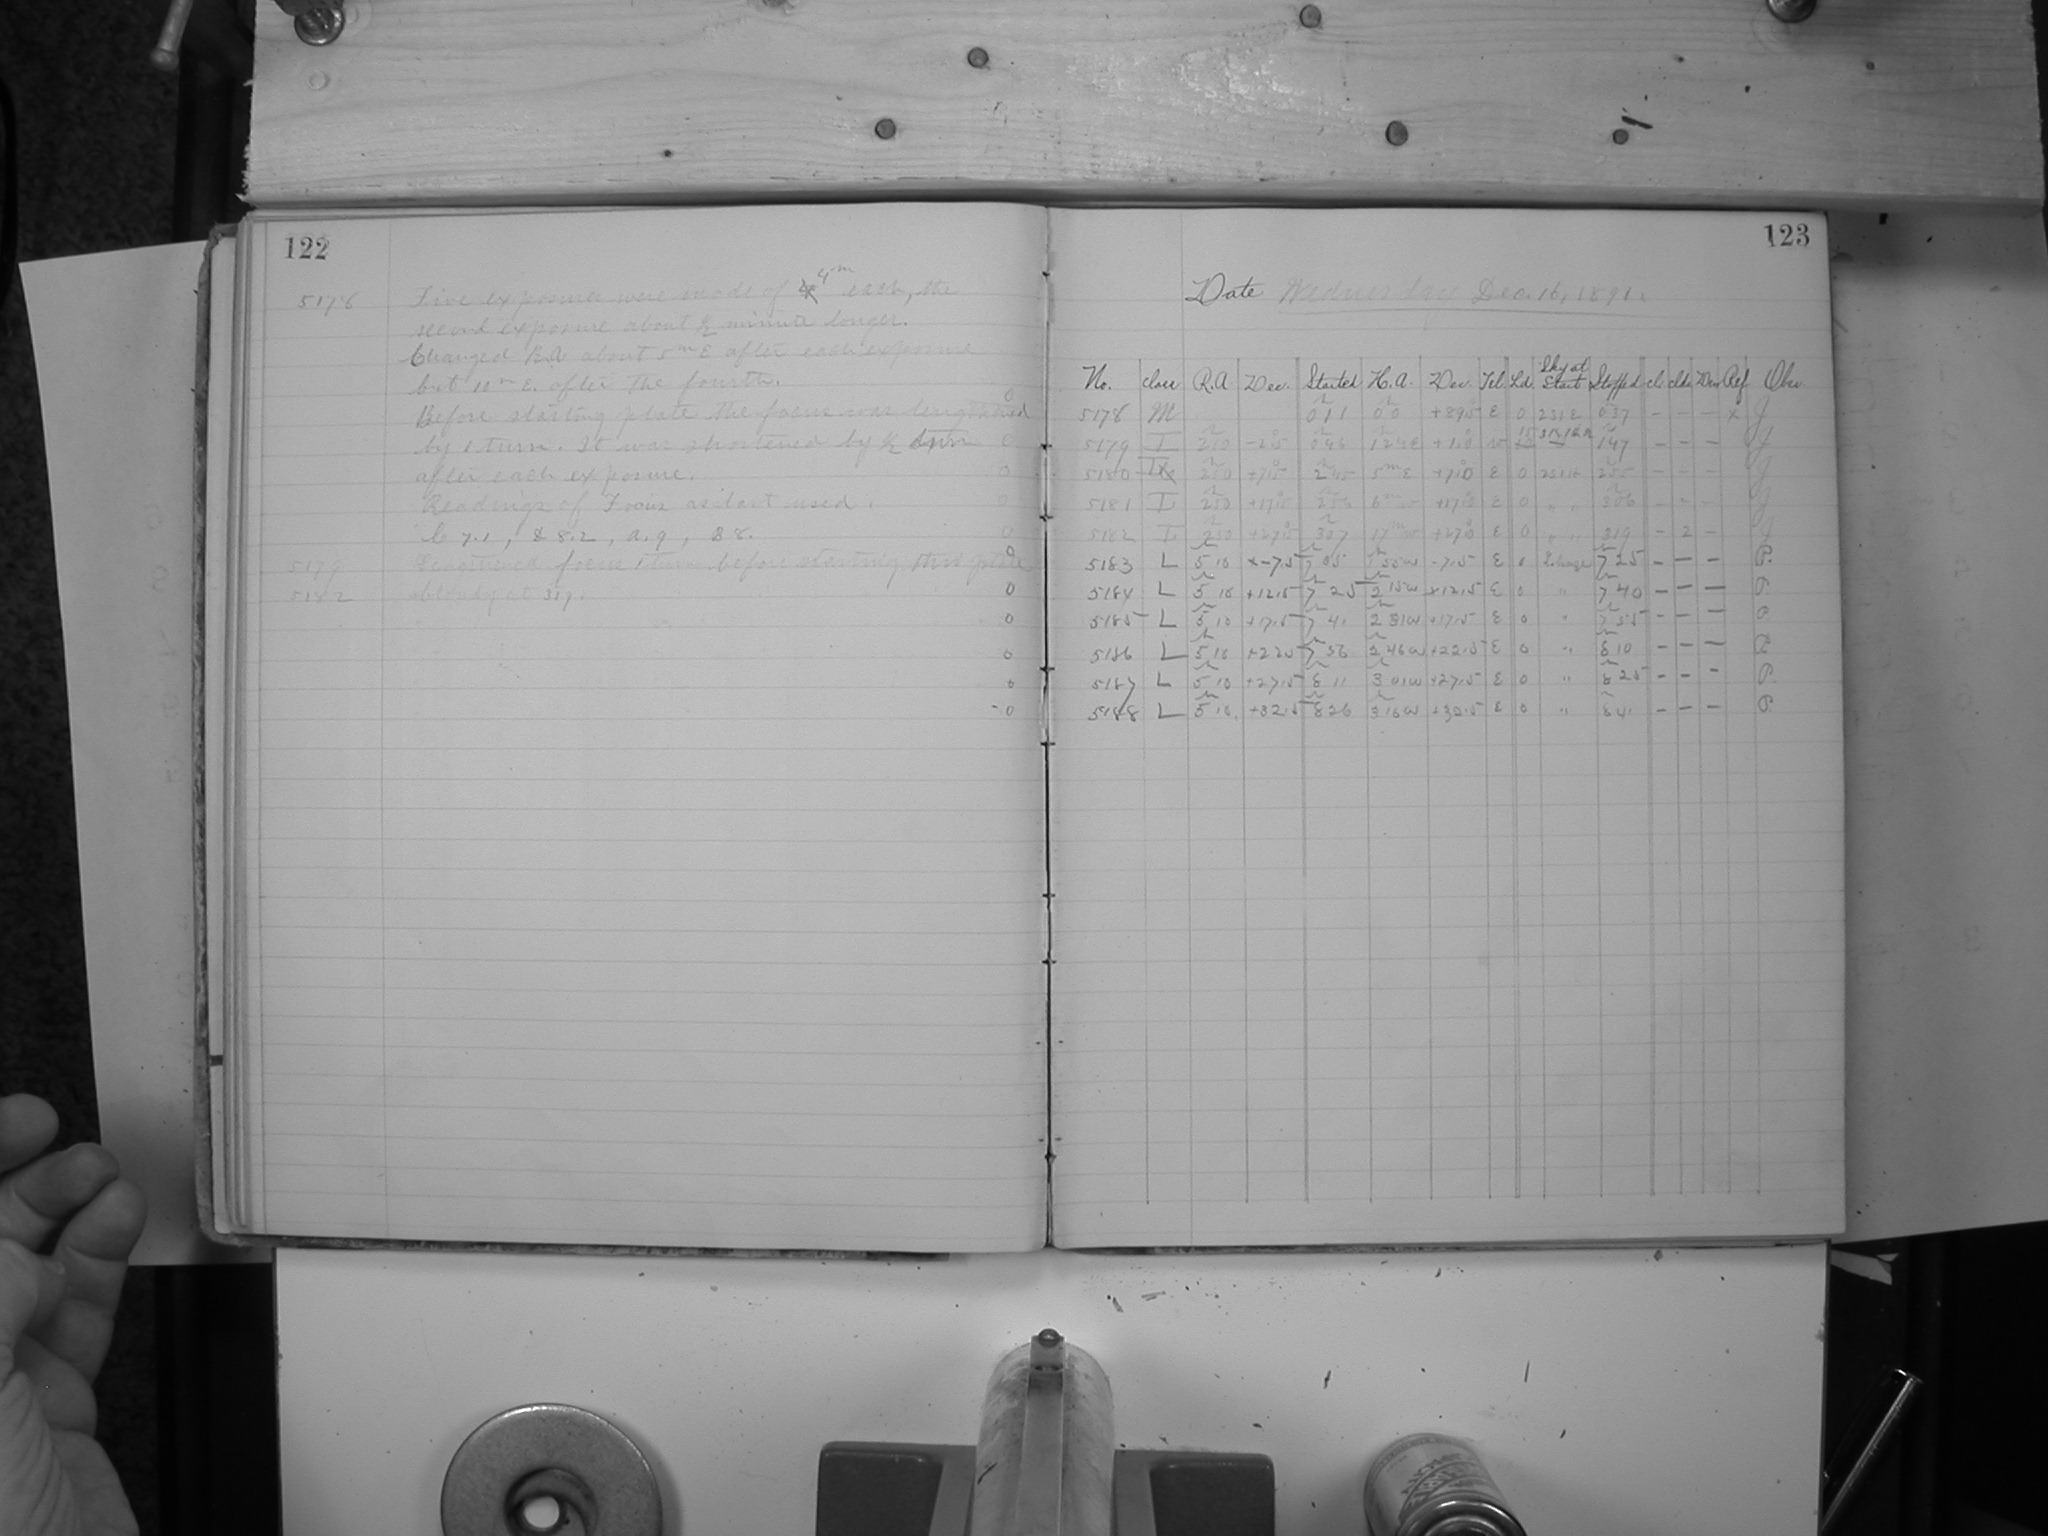 122
5178 Five exposures were made of 4m each, the
second exposure about ½ minute longer.
Changed R.A about 5m E after each exposure
but 10m E. after the fourth.
Before starting plate the focus was lengthened
by 1 turn. It was shortened by ½ turn
after each exposure.
Readings of Focus as last used.
8.2, a. 9, B 8.
5179 Shortened focus 1 turn before starting this plate
5182 cloudy at 319.
123
Date Wednesday Dec. 16, 1891.
No. class R.A Dec. Started H.A. Dec. Tel Ld. Sky at Start Stopped cl. clds Dew Ref Obs.
5178 M 0 11 0 0 +89.5 E 0 231E 0 37 - - - x J
5179 I 2 50 1 24 E W 1 47 - - - J
5180 2 50 +7.5 2 45 5m E +7.0 E 0 2 55 - - - J
5181 I 2 50 +17.5 2 56 6m +17.0 E 0 " " 3 06 - - - J
5182 I 2 50 +27.5 3 07 17m W +27.0 E 0 " " 319 - 2 - J
5183 L 5 10 -7.5 7 05 1 55 W -7.5 E 0 7 25 - - -
5184 L 5 10 +12.5 7 25 2 15 W +12.5 E 0 " 7 40 - - -
5185 L 5 10 +17.5 7 41 2 31 W +17.5 E 0 " 7 55 - - -
5186 L 5 10 +22.5 7 56 2 46 W +22.5 E 0 " 8 10 - - -
5187 L 5 10 +27.5 8 11 3 01 W +27.5 E 0 " 8 25 - - -
5188 L 5 10. +32.5 8 26 3 16 W +32.5 E 0 " 8 41 - - -